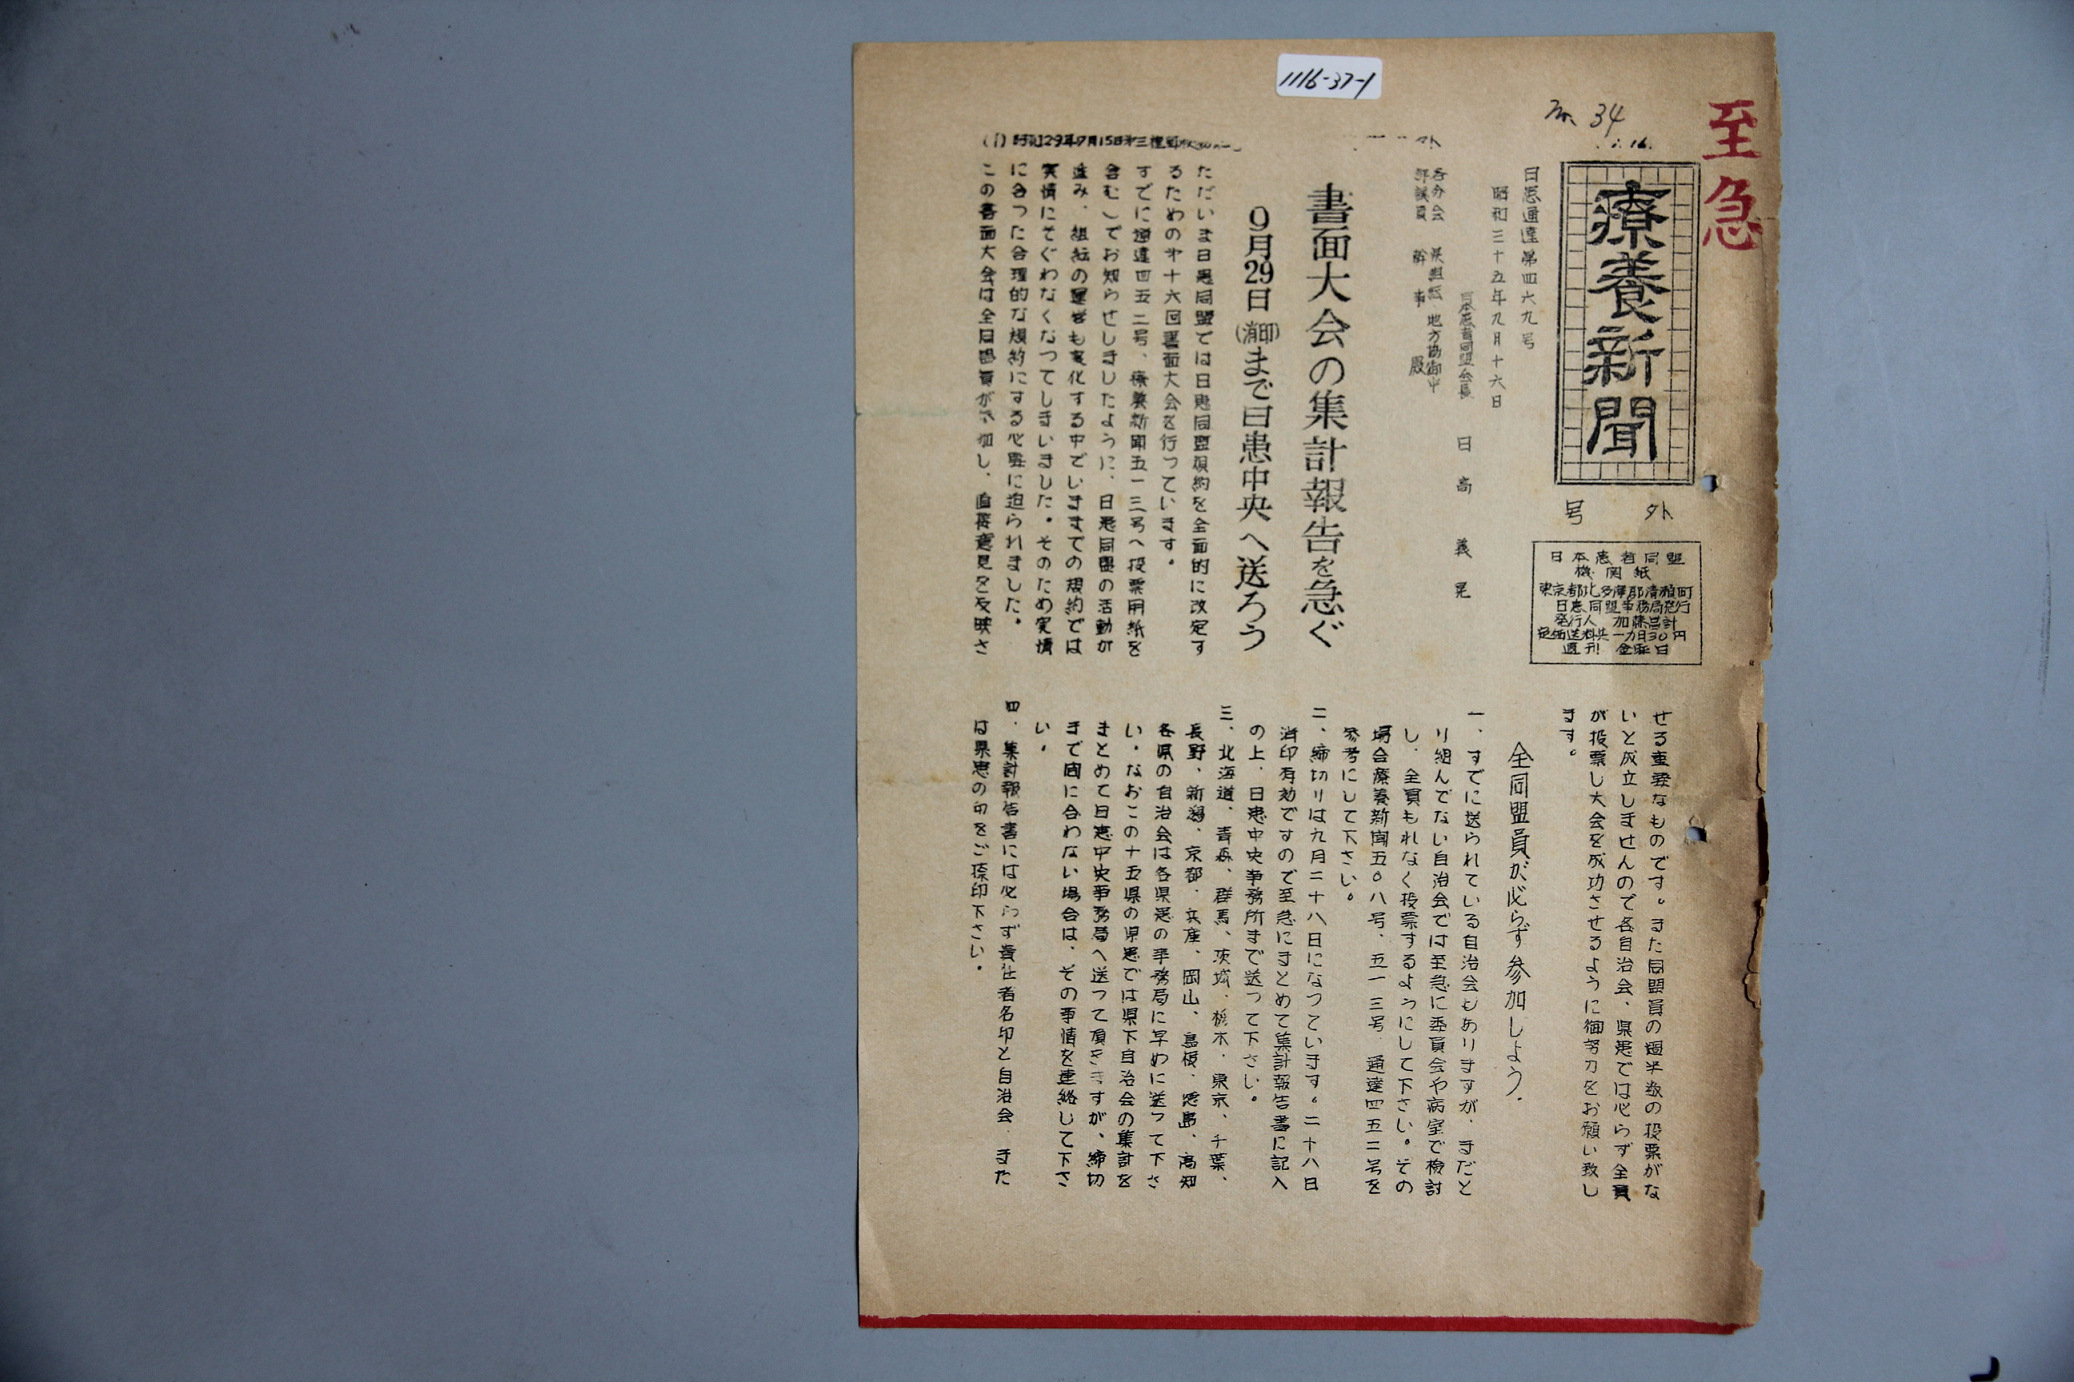 1116-37-1
No. 34
至急
療養新聞
号外
日本患者同盟
機関紙
東京都北多摩郡清瀬町
日患同盟事務局発行
発行人 加藤昌計
定価送料共一カ月30円
週刊 金曜日
日患通達第四六九号
昭和三十五年九月十六日
日本患者同盟会長 日高義晃
各分会 県患組 地方協御中
評議員 幹事殿
書面大会の集計報告を急ぐ
9月29日(消印)まで日患中央へ送ろう
ただいま日患同盟では日患同盟規約を全面的に改定す
るための第十六回書面大会を行っています。
すでに通達四五二号、療養新聞五一三号へ投票用紙を
含む)でお知らせしましたように、日患同盟の活動が
進み、組織の運営も変化する中でいままでの規約では
実情にそぐわなくなつてしまいました。そのため実情
に合った合理的な規約にする必要に迫られました。
この書面大会は全同盟員が参加し、直接意見を反映さ
せる重要なものです。また同盟員の過半数の投票がな
いと成立しませんので各自治会、県患では必らず全員
が投票し大会を成功させるように御努力をお願い致し
ます。
全同盟員が必らず参加しよう.
一、すでに送られている自治会もありますが、まだと
り組んでない自治会では至急に委員会や病室で検討
し、全員もれなく投票するようにして下さい。その
場合療養新聞五〇八号、五一三号、通達四五二号を
参考にして下さい。
二、締切りは九月二十八日になっています。二十八日
消印有効ですので至急にまとめて集計報告書に記入
の上、日患中央事務所まで送って下さい。
三、北海道、青森、群馬、茨城、栃木、東京、千葉、
長野、新潟、京都、兵庫、岡山、島根、徳島、高知
各県の自治会は各県患の事務局に早めに送って下さ
い。なおこの十五県の県患では県下自治会の集計を
まとめて日患中央事務局へ送って頂きますが、締切
まで間に合わない場合は、その事情を連絡して下さ
い。
四、集計報告書には必らず責任者名印と自治会、また
は県患の印をご捺印下さい。